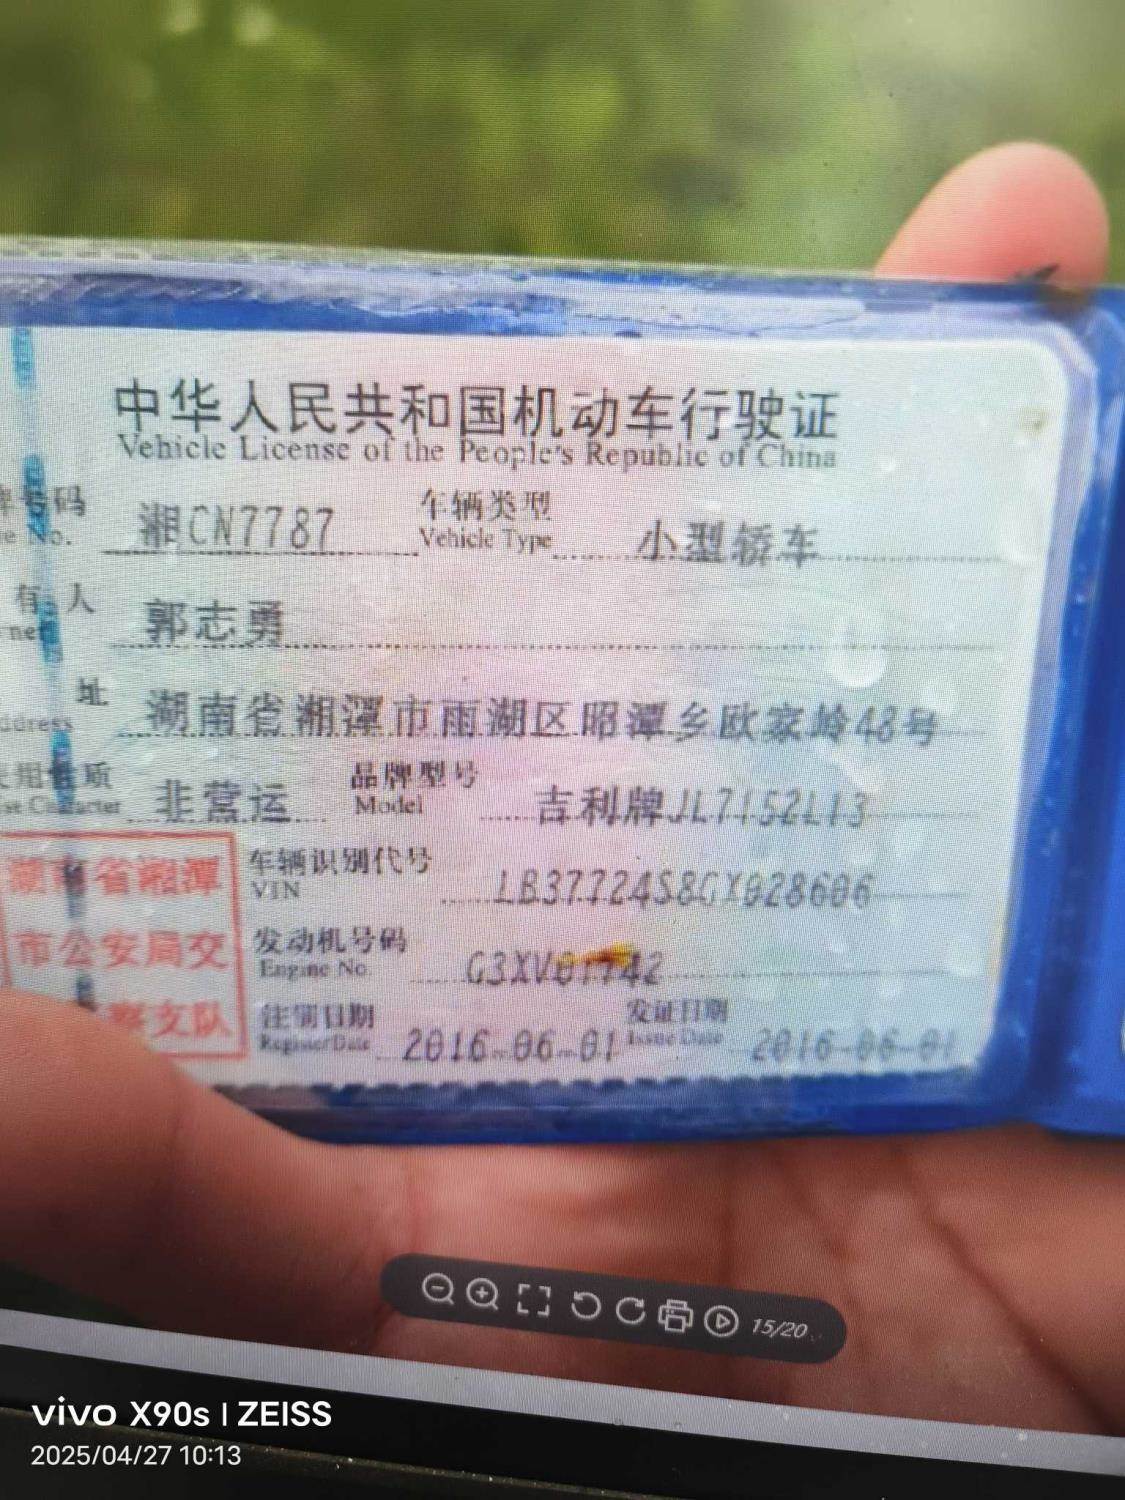 中华人民共和国机动车行驶证
Vehicle License of the People's Republic of China
号码 湘CN7787 车辆类型 小型轿车
No. Vehicle Type
有人 郭志勇
址 湖南省湘潭市雨湖区昭潭乡欧家岭48号
ddress
质 非营运 品牌型号 吉利牌JL7152L13
Character Model
湖南省湘潭
市公安局交
察支队
车辆识别代号 LB37724S8GX028606
VIN
发动机号码 G3XV01742
Engine No.
注册日期 2016-06-01 发证日期 2016-06-01
Register Date Issue Date
15/20
vivo X90s | ZEISS
2025/04/27 10:13